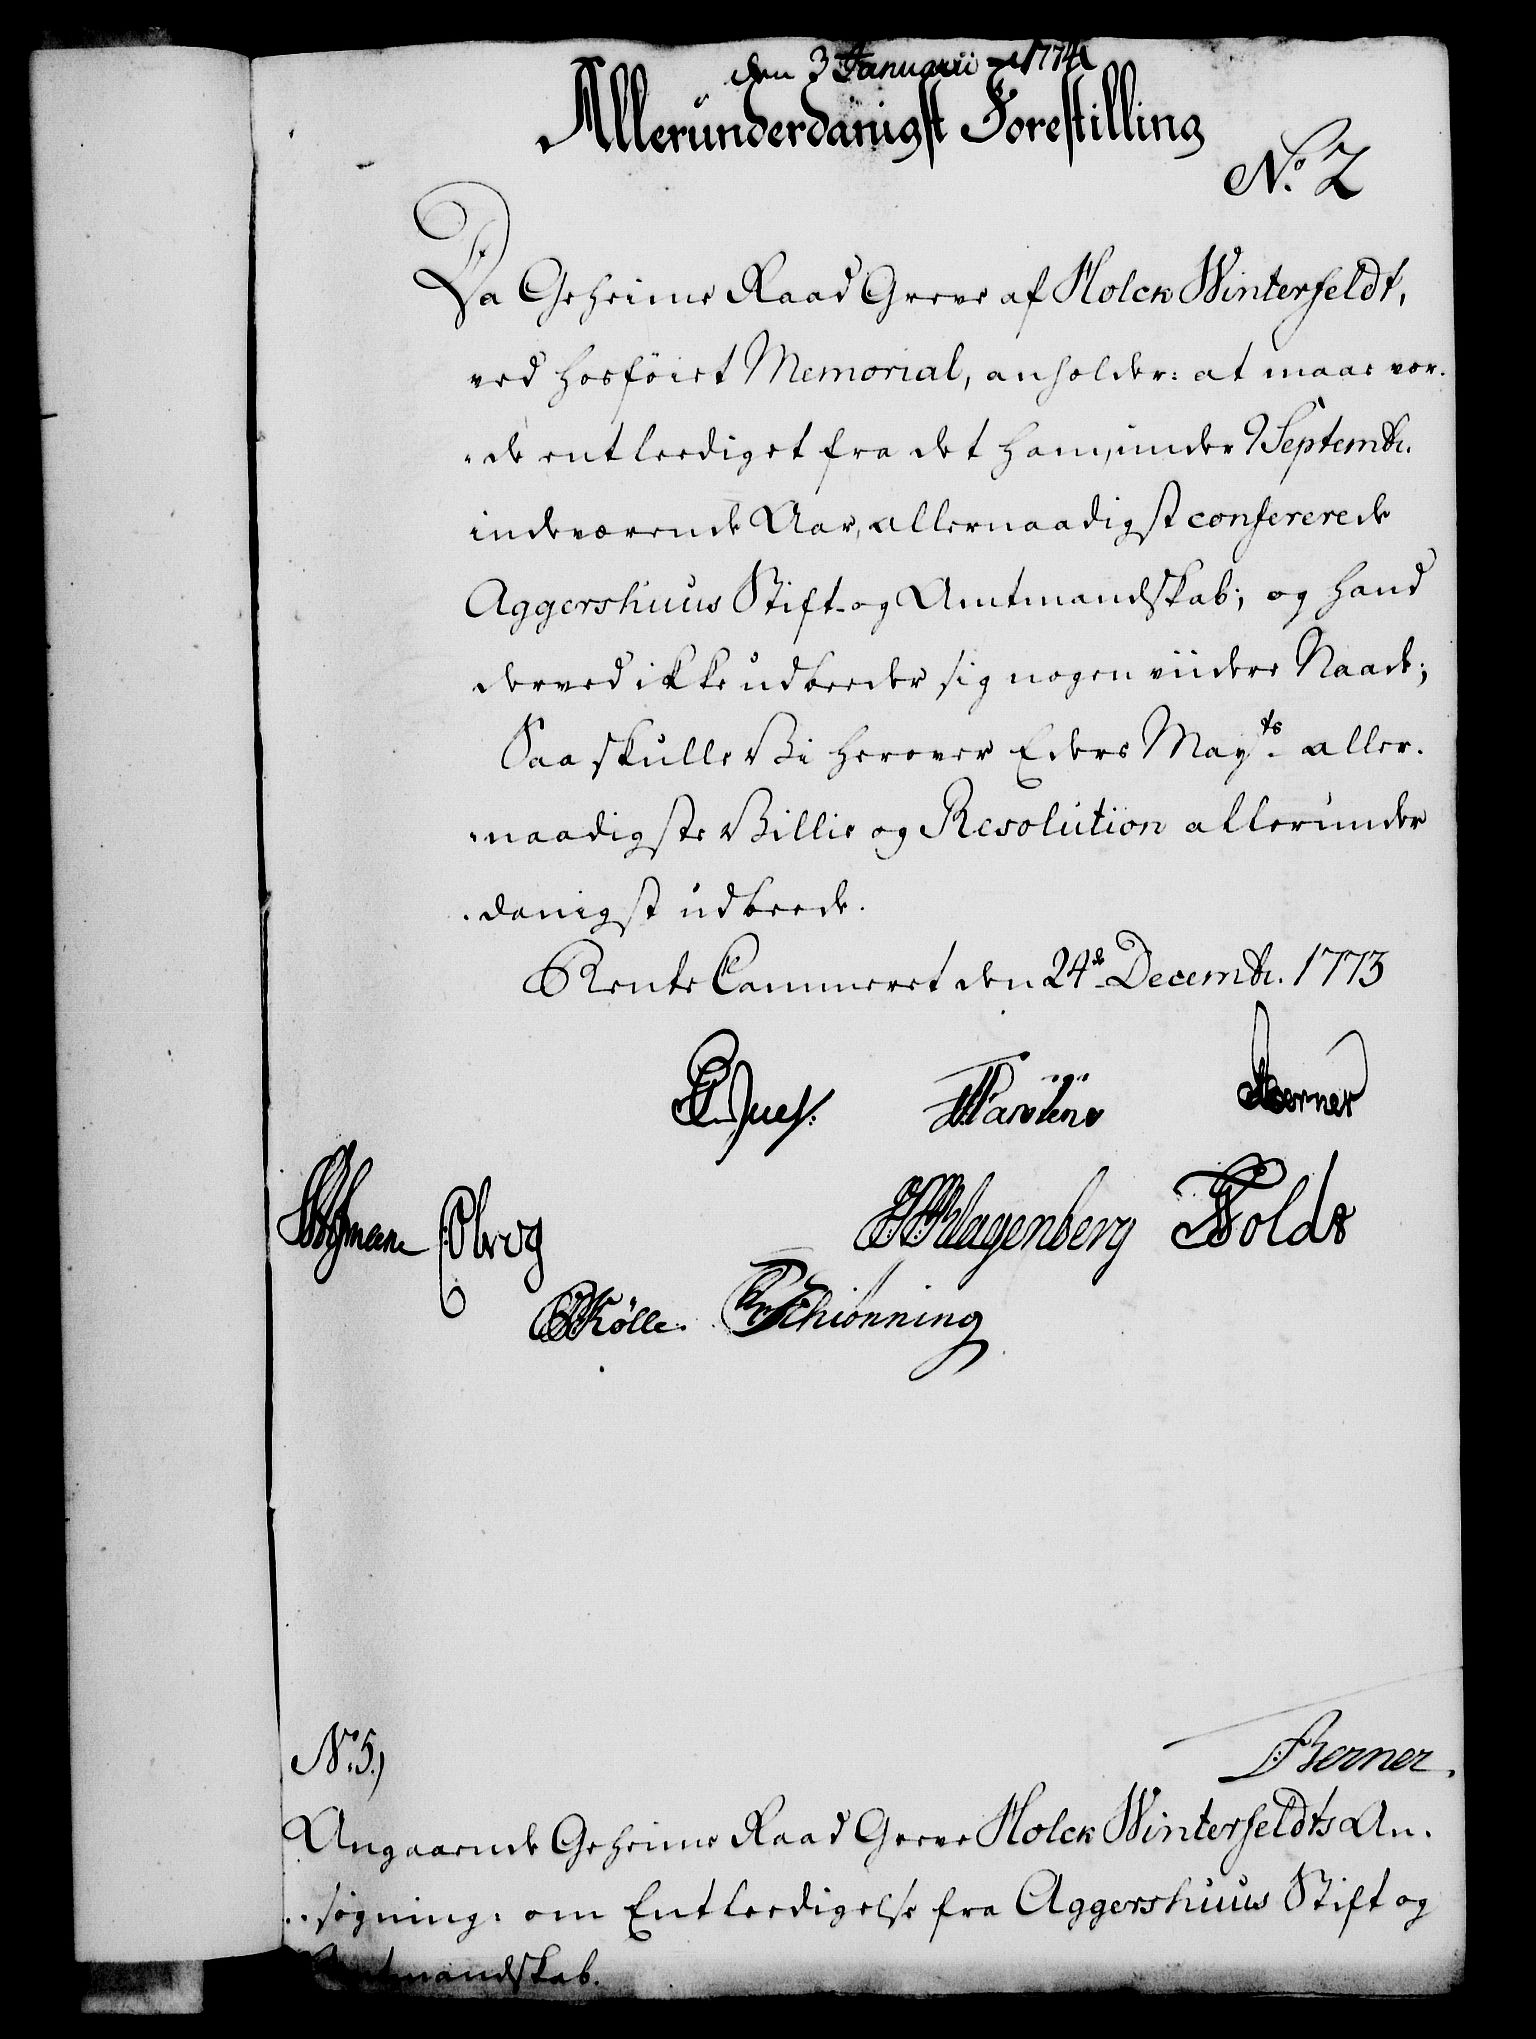 den 3 Januarii 1774
Alleründerdanigst Forestilling
No. 2
Da Geheime Raad Greve af Holck Winterfeldt,
ved hosföiet Memorial, anholder: at maae vor-
-de entleediget fra det ham, under 9 Septembr.
indeværende Aar, allernaadigst confererede
Aggershuus Stift- og Amtmandskab; og hand
derved ikke udbeeder sig nogen viidere Naade;
Saa skulle Vi herover Eders Mayts. aller-
-naadigste Villie og Resolution allerunder
-danigst udbeede.
Rente Cammeret den 24de Decembr. 1773
Juel.
Berner
Klagenberg
Kølle. Schiönning
No. 5.)
Berner.
Angaaende Geheime Raad Greve Holck Winterfeldts An-
-søgning: om Entleedigelse fra Aggershuus Stift og
Amtmandskab.